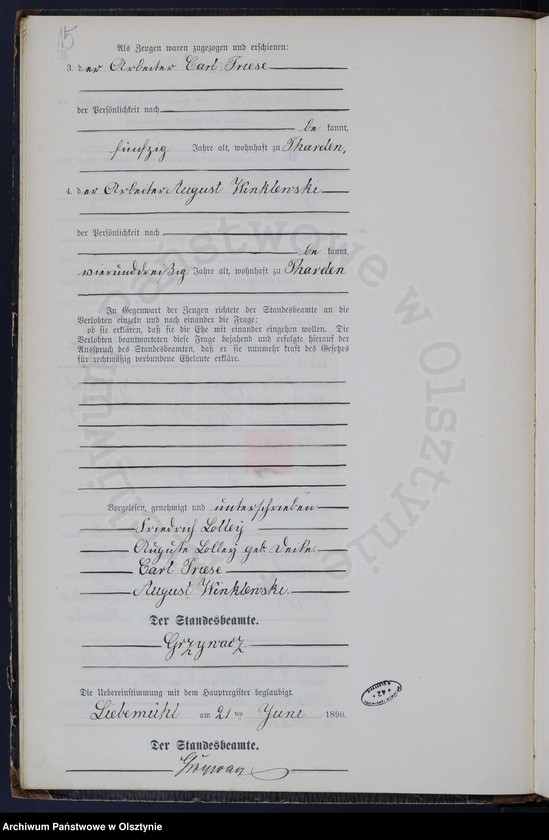 15
Als Zeugen waren zugezogen und erschienen:
3. der Arbeiter Carl Friese
der Persönlichkeit nach
be kannt,
fünfzig Jahre alt, wohnhaft zu Tharden,
4. der Arbeiter August Winklewski
der Persönlichkeit nach
be kannt,
vierunddreißig Jahre alt, wohnhaft zu Tharden
In Gegenwart der Zeugen richtete der Standesbeamte an die
Verlobten einzeln und nach einander die Frage:
ob sie erklären, daß sie die Ehe mit einander eingehen wollen. Die
Verlobten beantworteten diese Frage bejahend und erfolgte hierauf der
Ausspruch des Standesbeamten, daß er sie nunmehr kraft des Gesetzes
für rechtmäßig verbundene Eheleute erkläre.
Vorgelesen, genehmigt und unterschrieben
Friedrich Lolley
Auguste Lolley geb.
Carl Friese
August Winklewski.
Der Standesbeamte.
Grzywacz
Die Uebereinstimmung mit dem Hauptregister beglaubigt.
Liebemühl am 21 ten Juni 1890.
Der Standesbeamte.
Archiwum Państwowe w Olsztynie
Archiwum Państwowe w Olsztynie